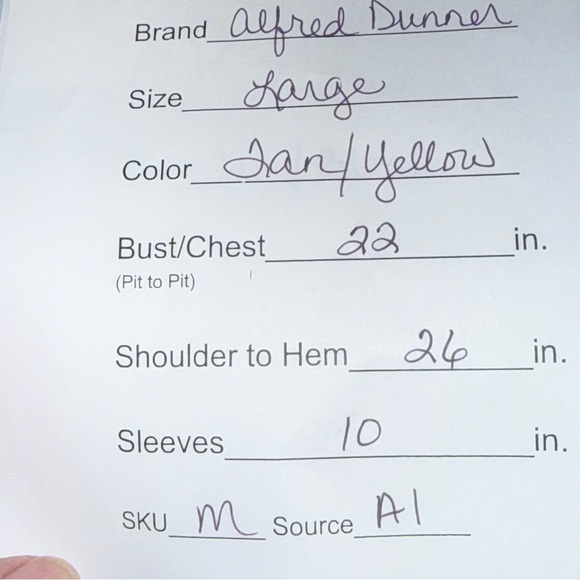 Brand Alfred Dunner
Size Large
Color Tan/Yellow
Bust/Chest 22 in.
(Pit to Pit)
Shoulder to Hem 26 in.
Sleeves 10 in.
SKU M Source A1